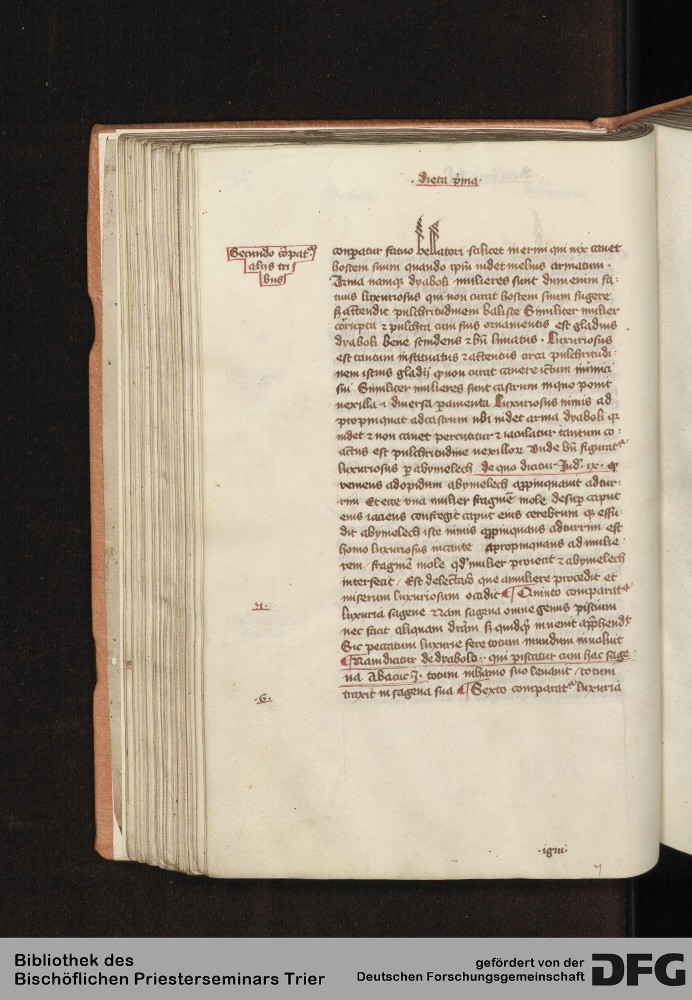 · dieta p̄ma ·
Secundo cōpat᷑
alijs tri
bus
conparatur fatuo bellatori scilicet inermi qui nix cauet
hostem suum quando ipm̄ uidet melius armatum ·
Arma namqꝫ dyaboli mulieres sunt dum enim fa⸗
tuus luxuriosus qui non curat hostem suum fugere
sꝫ attendit pulchritudinem baliste Similiter mulier
corrupta ⁊ pulchra cum suis ornamentis est gladius
dyaboli bene scindens ⁊ bn̄ limatus · Luxuriosus
est tantum infatuatus ⁊ attentus circa pulchritudi⸗
nem istius gladij qꝫ non curat cauere ictum inimici
sui Similiter mulieres sunt castrum in quo ponit
uexilla ·i· diuersa paramenta Luxuriosus nimis ad
propinquat ad castrum ubi uidet arma dyaboli qꝫ
uidet ⁊ non cauet percutitur ⁊ iaculatur tantum co⸗
actus est pulchritudine uexilloꝝ Vnde bn̄ figurat᷑
luxuriosus p abymelech de quo dicitur Jud · ix · ꝙ
ueniens ad opidum abymelech appinquauit ad tur⸗
rim Et ecce una mulier fragmē mole desup caput
eius iaciens confregit caput eius cerebrum qꝫ effu⸗
dit abymelech iste nimis appinquans ad turrim est
homo luxuriosus incaute apropinquans ad mulie⸗
rem / fragmē mole qd' mulier proiecit ⁊ abymelech
interfecit / Est delectatio que a muliere procedit et
miserum luxuriosum occidit ¶ Quinto comparat᷑
luxuria sagene ⁊ Nam sagena omne genus piscium
nec facit aliquam dr̄am sꝫ quidqꝫ inuenit app̄hend't
Sic peccatum luxurie fere totum mundum inuoluit
¶ Nam dicitur de dyabolo ·· qui piscatur cum hac sage⸗
na Abacuc J · totum in hamo suo leuauit / totum
traxit in sagena sua ¶ Sexto comparat᷑ luxuria
· 4 ·
· 6 ·
· igni ·
Bibliothek des
Bischöflichen Priesterseminars Trier
gefördert von der
Deutschen Forschungsgemeinschaft
DFG